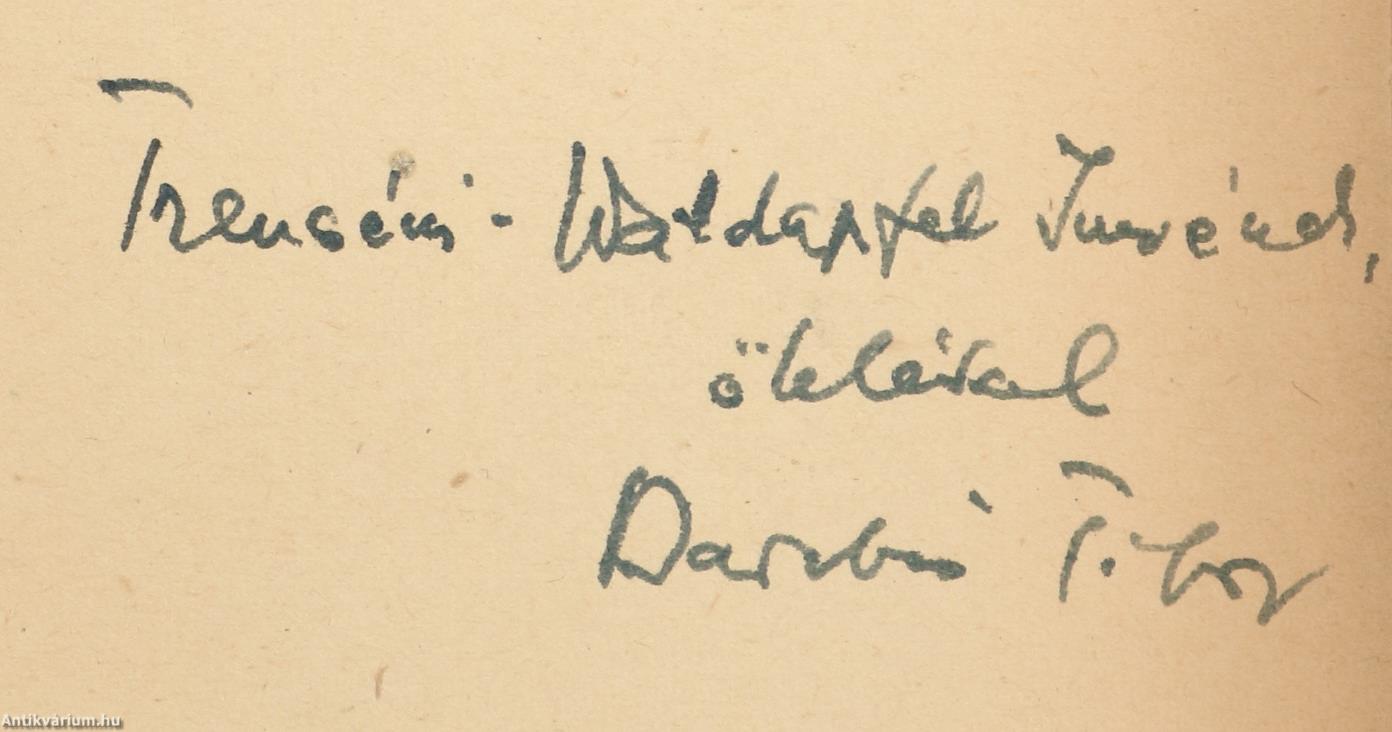 Trencséni - Waldapfel Imrének,
öleléssel
Barabás Tibor
Antikvárium.hu